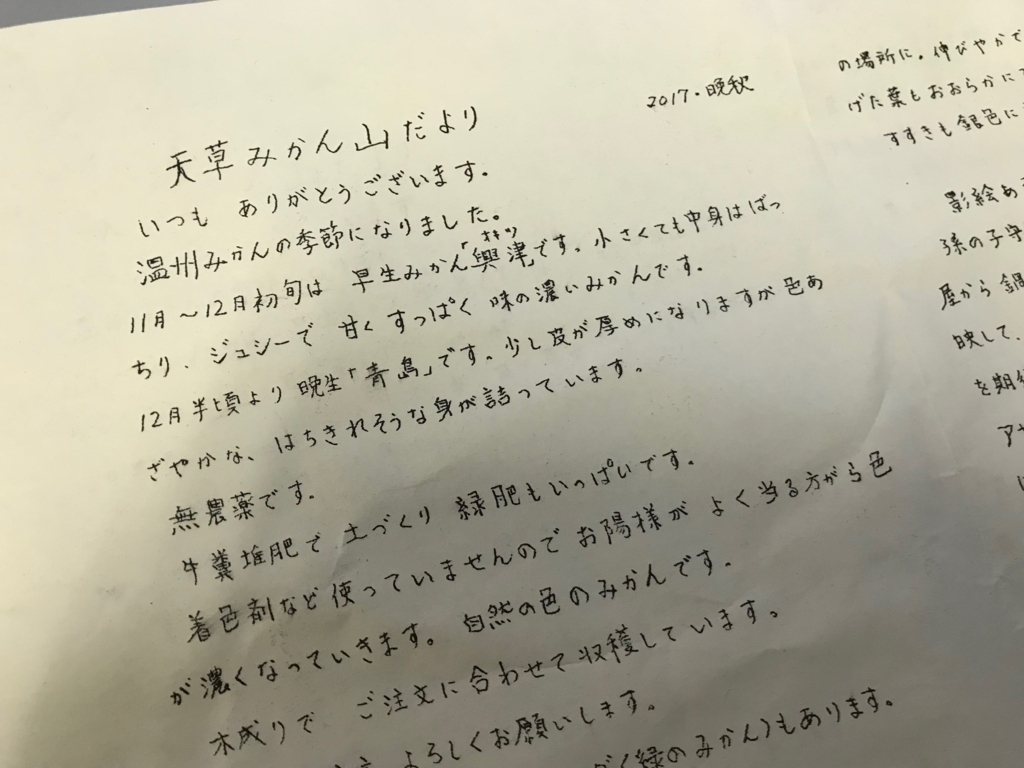 2017.晩秋
天草みかん山だより
いつも ありがとうございます.
温州みかんの季節になりました。
オキツ
11月～12月初旬は 早生みかん「興津」です. 小さくても中身はばっ
ちり、ジュシーで 甘く すっぱく 味の濃いみかんです.
12月半頃より晩生「青島」です. 少し皮が厚めになりますが色あ
ざやかな、はちきれそうな身が詰っています。
無農薬です.
牛糞堆肥で 土づくり 緑肥もいっぱいです.
着色剤など使っていませんのでお陽様が よく当る方から色
が濃くなっていきます。自然の色のみかんです.
木成りで ご注文に合わせて収穫しています。
よろしくお願いします.
(緑のみかん)もあります.
の場所に. 伸びやかで
げた葉もおおらかに
すすきも銀色に
影絵ある
孫の子守
屋から鍋
映して、
を期待
アヤ